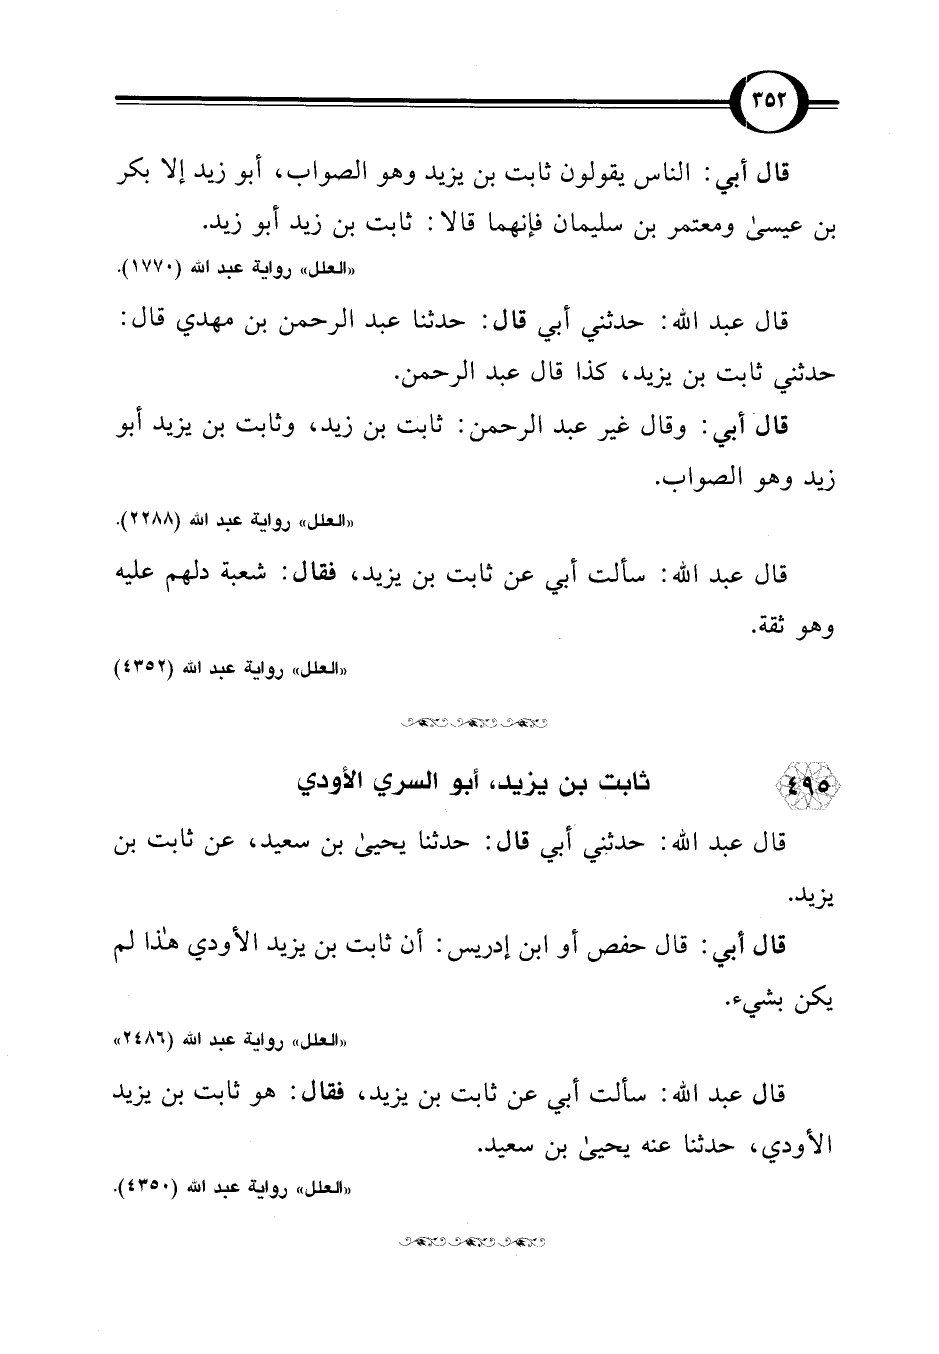 ٣٥٢
قال أبي: الناس يقولون ثابت بن يزيد وهو الصواب، أبو زيد إلا بكر
بن عيسىٰ ومعتمر بن سليمان فإنهما قالا: ثابت بن زيد أبو زيد.
«العلل» رواية عبد الله (١٧٧٠).
قال عبد الله: حدثني أبي قال: حدثنا عبد الرحمن بن مهدي قال:
حدثني ثابت بن يزيد، كذا قال عبد الرحمن.
قال أبي: وقال غير عبد الرحمن: ثابت بن زيد، وثابت بن يزيد أبو
زيد وهو الصواب.
«العلل» رواية عبد الله (٢٢٨٨).
قال عبد الله: سألت أبي عن ثابت بن يزيد، فقال: شعبة دلهم عليه
وهو ثقة.
«العلل» رواية عبد الله (٤٣٥٢)
٤٩٥ ثابت بن يزيد، أبو السري الأودي
قال عبد الله: حدثني أبي قال: حدثنا يحيىٰ بن سعيد، عن ثابت بن
يزيد.
قال أبي: قال حفص أو ابن إدريس: أن ثابت بن يزيد الأودي هٰذا لم
يكن بشيء.
«العلل» رواية عبد الله (٢٤٨٦»
قال عبد الله: سألت أبي عن ثابت بن يزيد، فقال: هو ثابت بن يزيد
الأودي، حدثنا عنه يحيىٰ بن سعيد.
«العلل» رواية عبد الله (٤٣٥٠).